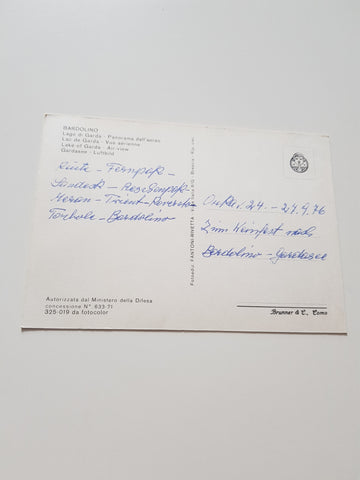 BARDOLINO
Lago di Garda - Panorama dall'aereo
Lac de Garda - Vue aérienne
Lake of Garda - Air-view
Gardasee - Luftbild
Reute - Fernpaß -
Landeck - Reschenpaß
Meran - Trient - Rovereto
Torbole - Bardolino
24. - 27.9.76
Zum Weinfest nach
Bardolino - Gardasee
Autorizzata dal Ministero della Difesa
concessione N° 633-71
325-019 da fotocolor
Fotoediz. FANTONI-RIVETTA
Brunner & C., Como